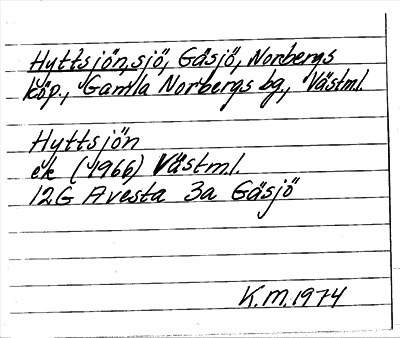 Hyttsjön, sjö, Gäsjö, Norbergs
köp., Gamla Norbergs bg., Västml.
Hyttsjön
ek (1966) Västml.
12G Avesta 3a Gäsjö
K.M. 1974